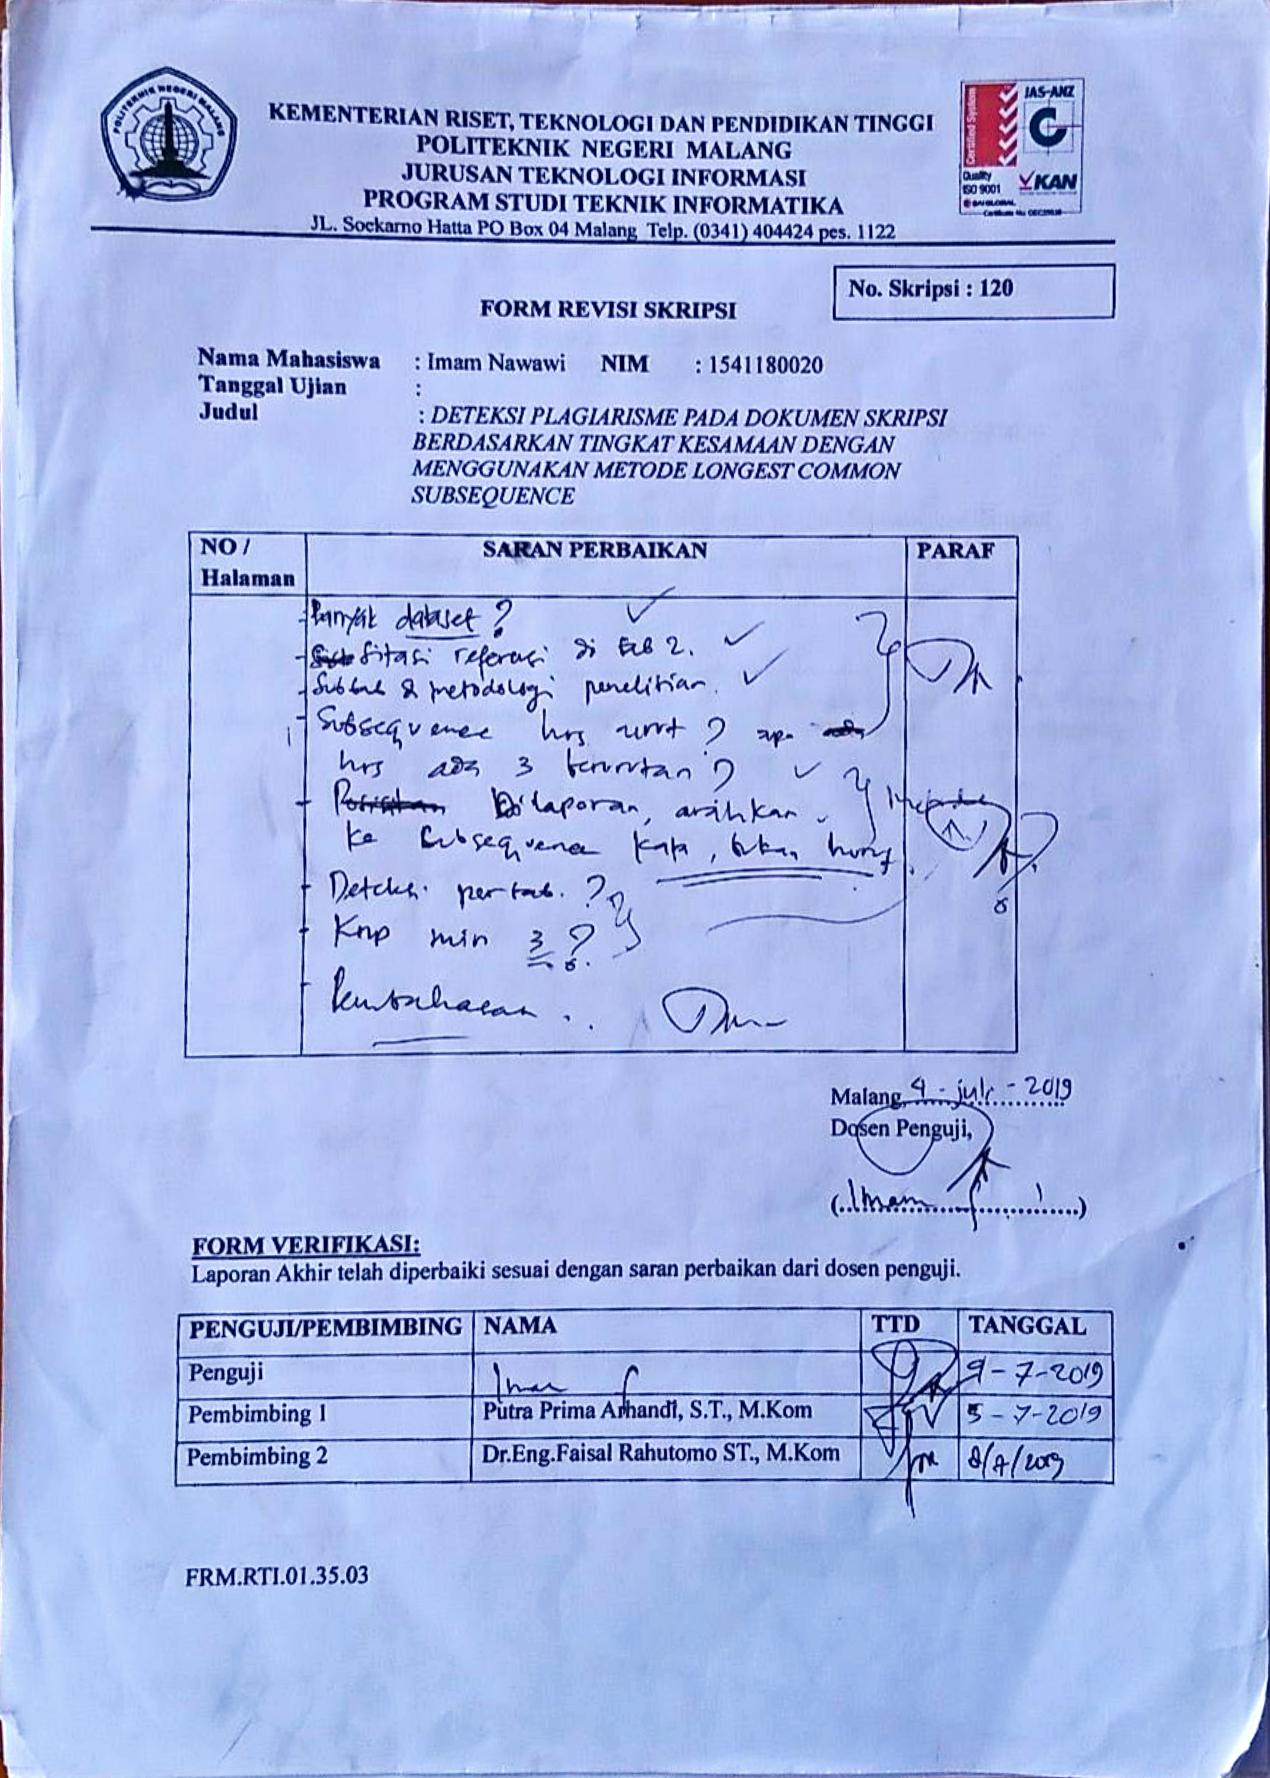 POLITEKNIK NEGERI MALANG
Certified System
JAS-ANZ
Quality
ISO 9001
KAN
SAI GLOBAL
KEMENTERIAN RISET, TEKNOLOGI DAN PENDIDIKAN TINGGI
POLITEKNIK NEGERI MALANG
JURUSAN TEKNOLOGI INFORMASI
PROGRAM STUDI TEKNIK INFORMATIKA
JL. Soekarno Hatta PO Box 04 Malang Telp. (0341) 404424 pes. 1122
No. Skripsi : 120
FORM REVISI SKRIPSI
Nama Mahasiswa : Imam Nawawi NIM : 1541180020
Tanggal Ujian :
Judul : DETEKSI PLAGIARISME PADA DOKUMEN SKRIPSI
BERDASARKAN TINGKAT KESAMAAN DENGAN
MENGGUNAKAN METODE LONGEST COMMON
SUBSEQUENCE
NO / Halaman SARAN PERBAIKAN PARAF
- Banyak dataset ?
- sitasi referensi di bab 2.
- Subbab & metodologi penelitian.
- Subsequence hrs urut ? apa
hrs ada 3 berurutan ?
- Di laporan, arahkan
ke subsequence kata, bukan huruf
- Deteksi per bab. ?
- Knp min 3 ?
- Pembahasan . .
Malang, 4 - juli - 2019
Dosen Penguji,
(Imam)
FORM VERIFIKASI:
Laporan Akhir telah diperbaiki sesuai dengan saran perbaikan dari dosen penguji.
PENGUJI/PEMBIMBING NAMA TTD TANGGAL
Penguji Imam 9-7-2019
Pembimbing 1 Putra Prima Arhandi, S.T., M.Kom 5-7-2019
Pembimbing 2 Dr.Eng.Faisal Rahutomo ST., M.Kom 8/7/2019
FRM.RTI.01.35.03